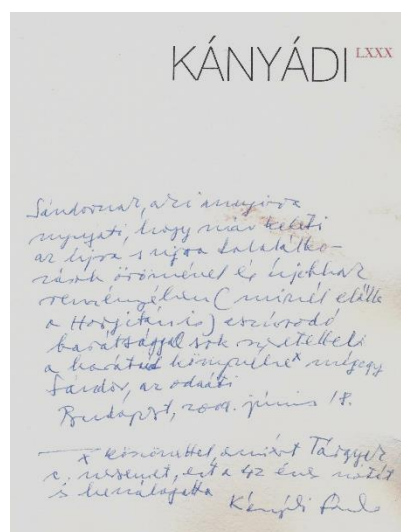 KÁNYÁDI LXXX
Sándornak, aki annyira
nyugati, hogy már keleti
az újra s újra találatko-
zások örömével és újabbak
reményében (minél előbb
a Hargitán is)
barátsággal sok szeretettel
a barátod könyvéhez x mégegy
Sándor, az odaáti
Budapest, 2009. június 18.
x köszönettel, amiért Tárgyer
c. versemet, ezt a 42 éves nótát
is beválogatta Kányádi Sándor